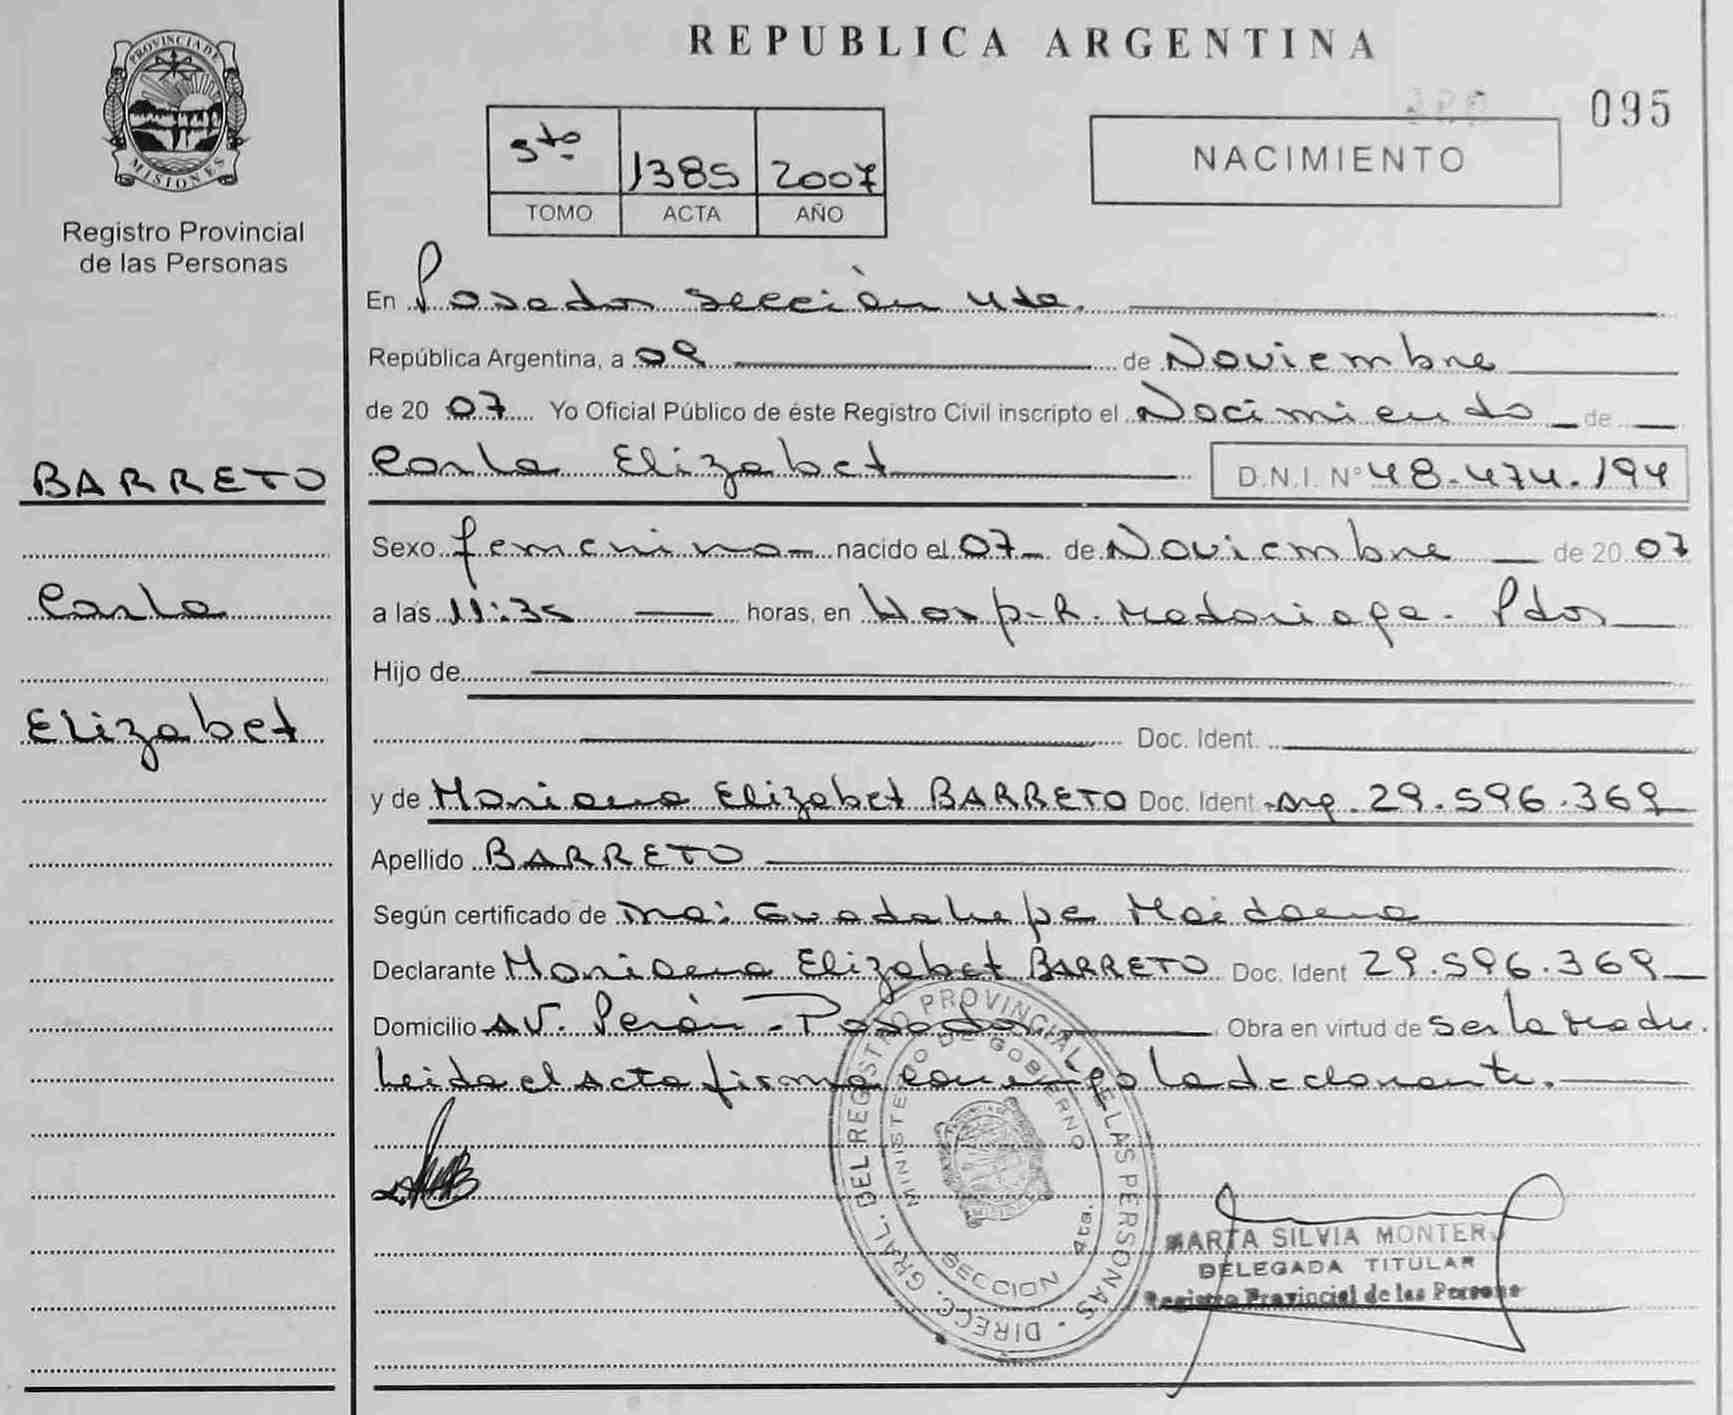 REPUBLICA ARGENTINA
095
PROVINCIA DE
MISIONES
Registro Provincial
de las Personas
5to 1385 2007
TOMO ACTA AÑO
NACIMIENTO
En Posadas sección 4ta.
República Argentina, a 09 de Noviembre
de 2007 Yo Oficial Público de éste Registro Civil inscripto el Nacimiento de
Carla Elizabet D.N.I. Nº 48.474.194
BARRETO
Carla
Elizabet
Sexo femenino nacido el 07 de Noviembre de 2007
a las 11:35 horas, en Hosp. R. Madariaga. Pdas
Hijo de
Doc. Ident.
y de Mariana Elizabet BARRETO Doc. Ident. Arg. 29.596.369
Apellido BARRETO
Según certificado de Ma: Guadalupe Maidana
Declarante Mariana Elizabet BARRETO Doc. Ident 29.596.369
Domicilio AV. Perón - Posadas Obra en virtud de Ser la Madre.
Leida el acta firma conmigo la declarante.
DIRECC. GRAL. DEL REGISTRO PROVINCIAL DE LAS PERSONAS
MINISTERIO DE GOBIERNO
SECCION 4ta.
MARTA SILVIA MONTERO
DELEGADA TITULAR
Registro Provincial de las Persona